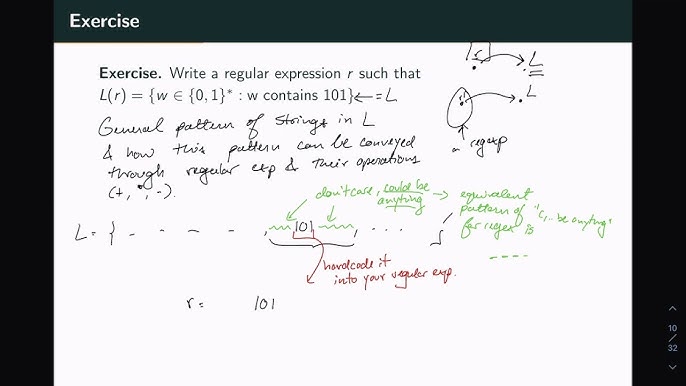 Exercise
Exercise. Write a regular expression r such that
L(r) = {w ∈ {0, 1}* : w contains 101} ← = L
r
L
r
L
a regexp
General pattern of strings in L
& how this pattern can be conveyed
through regular exp & their operations
(+, *, ·).
don't care, could be → equivalent
anything
pattern of "c,... be anything"
for regex is
L = { - - - - , 101 , . . .
hardcode it
into your regular exp.
r = 101
10
32